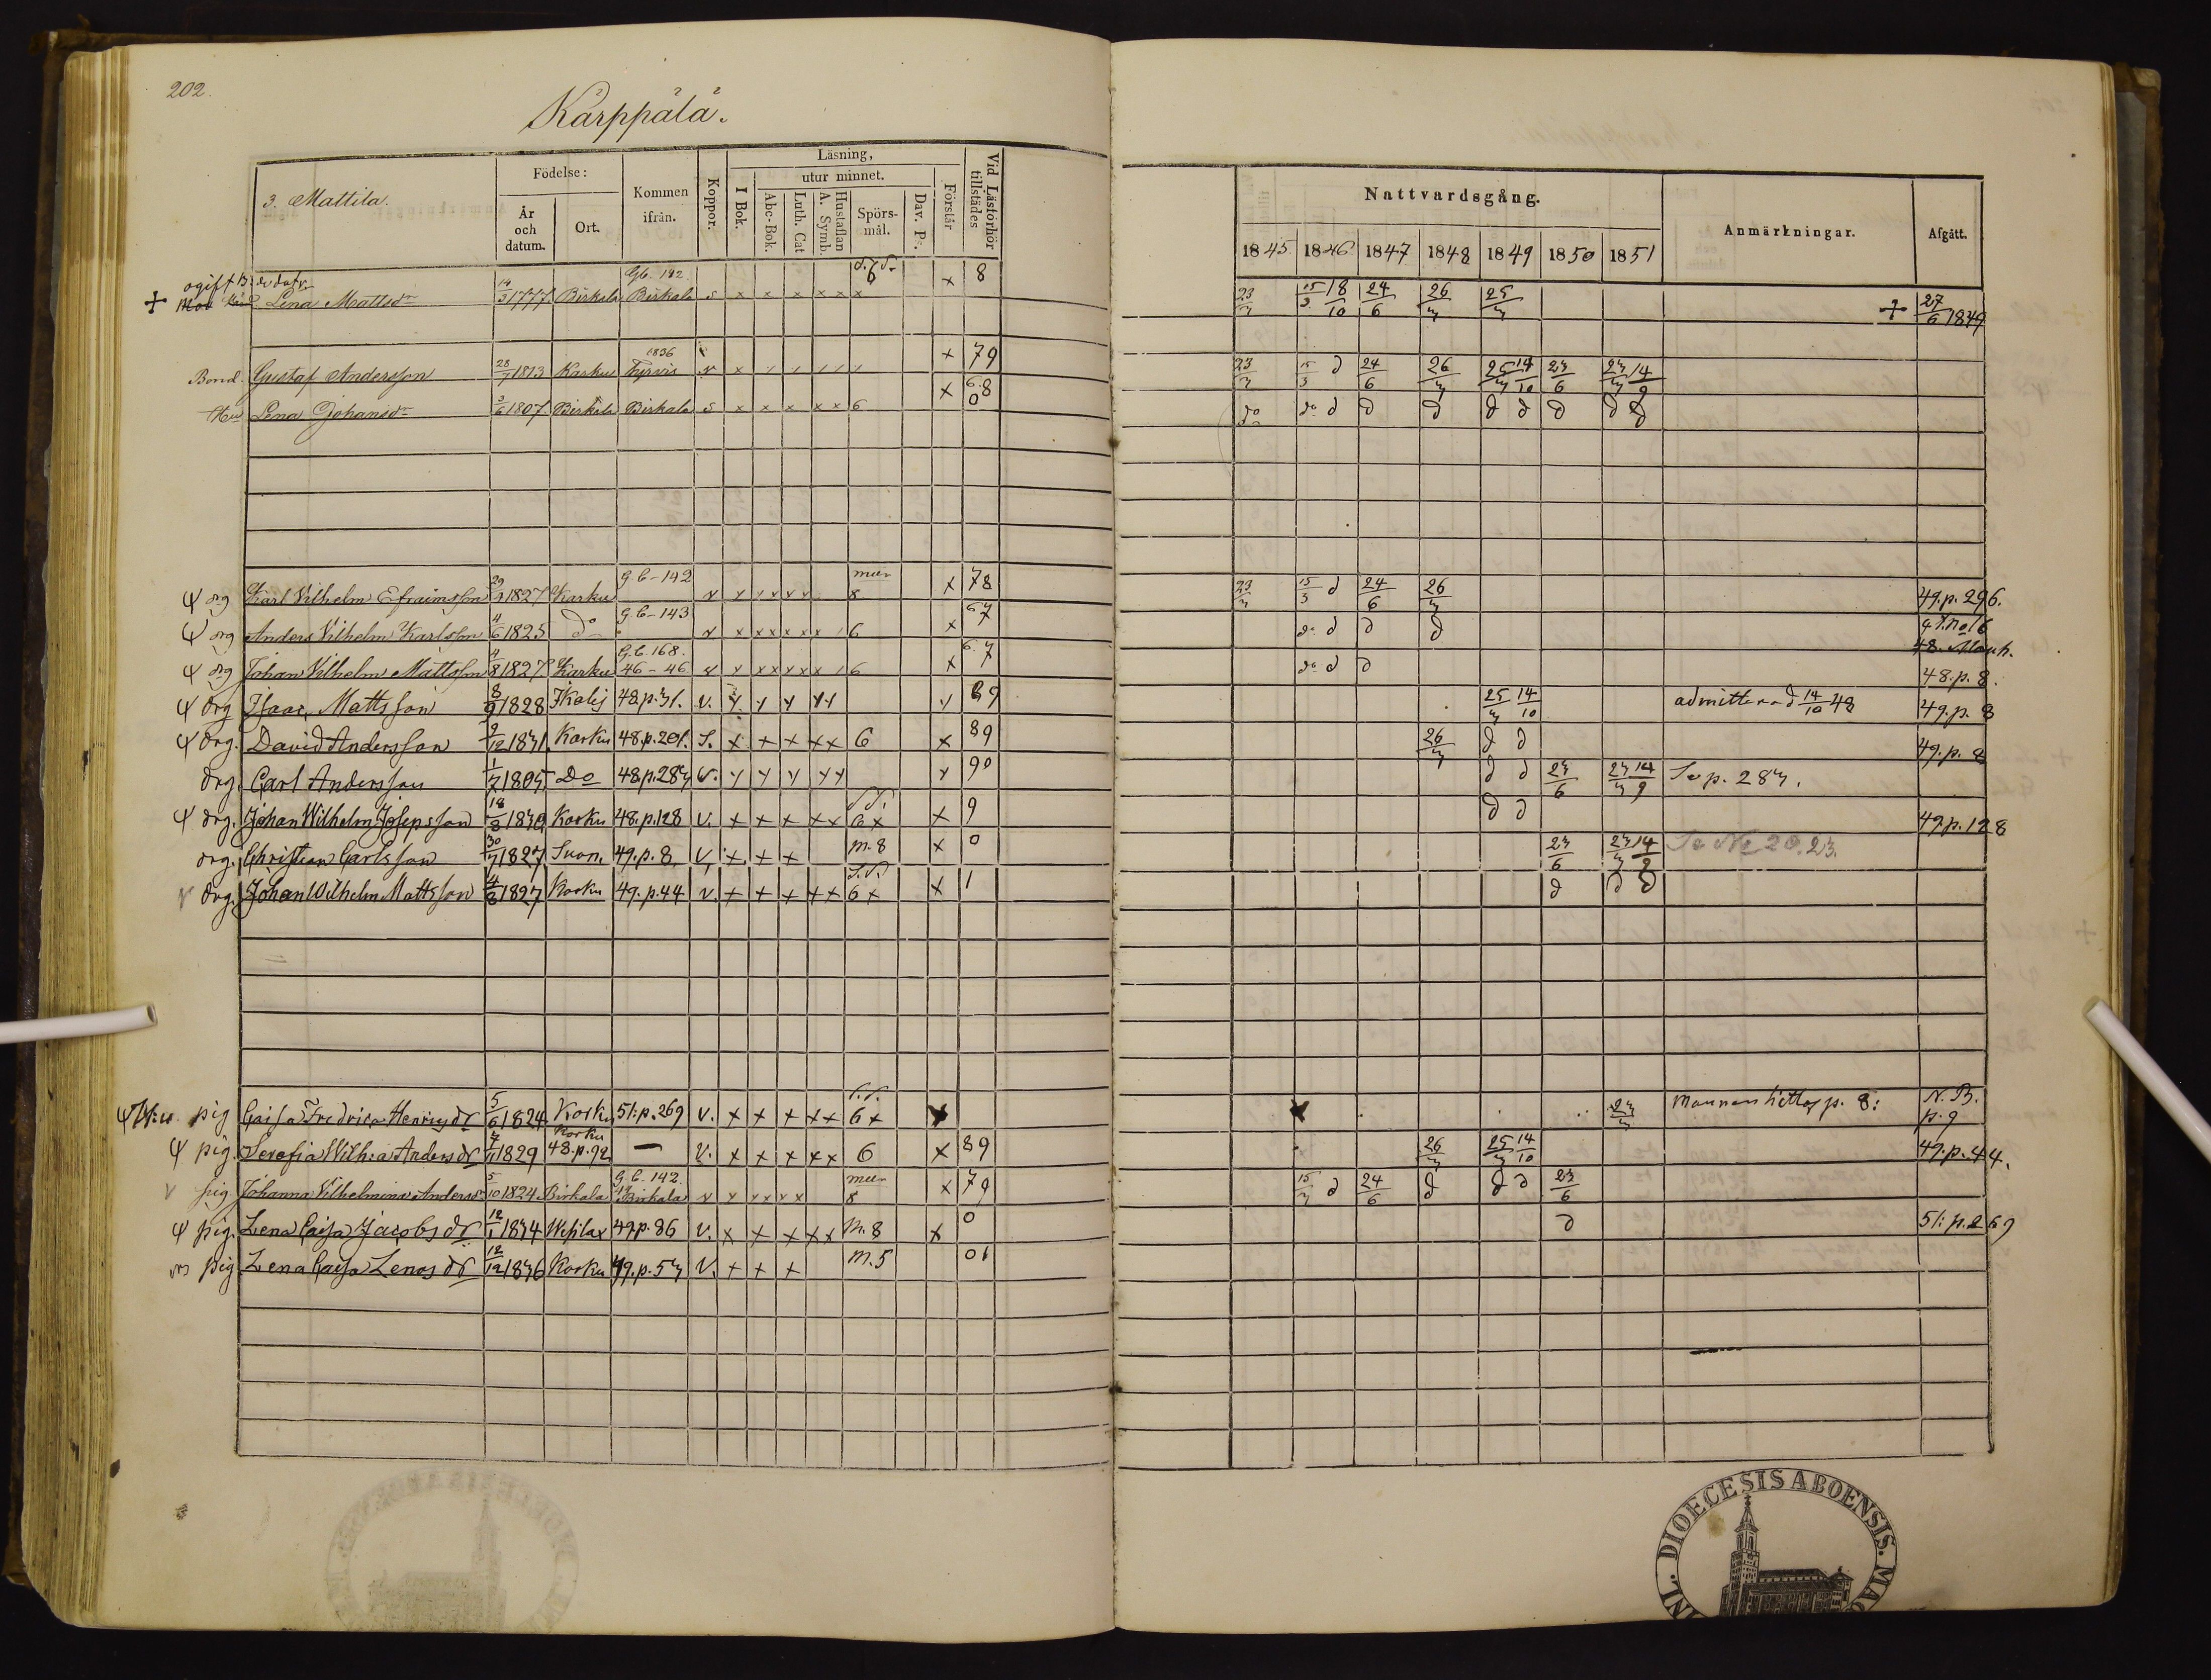 202.
Kärppälä.
3. Mattila.
Födelse:
År och datum.
Ort.
Kommen ifrån.
Koppor.
Läsning,
I Bok.
utur minnet.
Abc-Bok.
Luth. Cat
Hustaflan A. Symb.
Spörsmål.
Dav. Ps.
Förstår
Vid Läsförhör tillstädes
Nattvardsgång.
1845 1846 1847 1848 1849 1850 1851
Anmärkningar.
Afgått.
ogift
+ Lena Mattsdr 14/3 1777 Birkala Birkala s x x x x x x x 8 23/3 15/3 18/10 24/6 26/3 25/3 + 27/6 1849
1836
Bond. Gustaf Andersson 28/7 1813 Karku Tyrvis v x x 79 23/3 15/3 d 24/6 26/3 25/3 14/10 23/6 23/3 14/9
Hu Lena Johansdr 3/6 1807 Birkala Birkala s x x x x x 6 x 68 0 do do d d d d d d d d
G.b-142 meer
ψ drg Karl Vilhelm Efraimsson 29/1 1827 Karku v 8 x 78 23/3 15/3 d 24/6 26/3 49.p. 296.
G.b-143
ψ drg Anders Vilhelm Karlsson 4/6 1825 do v x x x x x x 6 x 67 do d d d
G.b.168.
ψ drg Johan Vilhelm Mattsson 4/8 1827 Karku 46-46 x x x x x 6 x 67 do d d 48.p.8.
ψ drg Isaac Mattsson 8/9 1828 Ikalis 48.p.31. v. 89 25/3 14/10 admitterad 14/10 48 49.p. 8
ψ drg. David Andersson 9/12 1831 Karku 48.p.201. S. x x x x x 6 x 89 26/3 d d 49.p. 8
drg. Carl Andersson 1/7 1805 Do 48.p.283 V. 90 d d 23/6 23/3 14/9 Se p. 283.
ψ drg. Johan Wilhelm Josepsson 18/8 1830 Karku 48.p.128 V. x x x x x 6 x x 9 d d 49.p.128
drg. Christian Carlsson 30/7 1827 Suon. 49.p.8. V. x x x m.8 x 0 23/6 23/3 14/9 Se No 20.23.
v drg. Johan Wilhelm Mattsson 4/8 1827 Karku 49.p.44 V. x x x x x 6 x x 1 d d d
pig Caisa Fredrica Henricsdr 5/6 1824 Karku 51:p.269 V. x x x x x 6 x 23/3 p. 8: N.B. p.9
ψ pig. Serafia Wilh:a Andersdr 7/11 1829 Karku 48.p.92 — V. x x x x x 6 x 89 26/3 25/3 14/10 49.p.44.
G.b.142. meer
v pig. Johanna Vilhelmina Andersdr 5/10 1824 Birkala Birkala v x x x x x 8 x 79 15/3 d 24/6 d d d 23/6
ψ pig. Lena Caisa Jacobsdr 12/1 1834 Wesilax 49.p.86 V. x x x x x m.8 x 0 d 51:p.269
pig. Lena Caisa Lenasdr 12/12 1836 Karku 49.p.53 V. x x x m.5 01
DIOECESIS ABOENSIS.